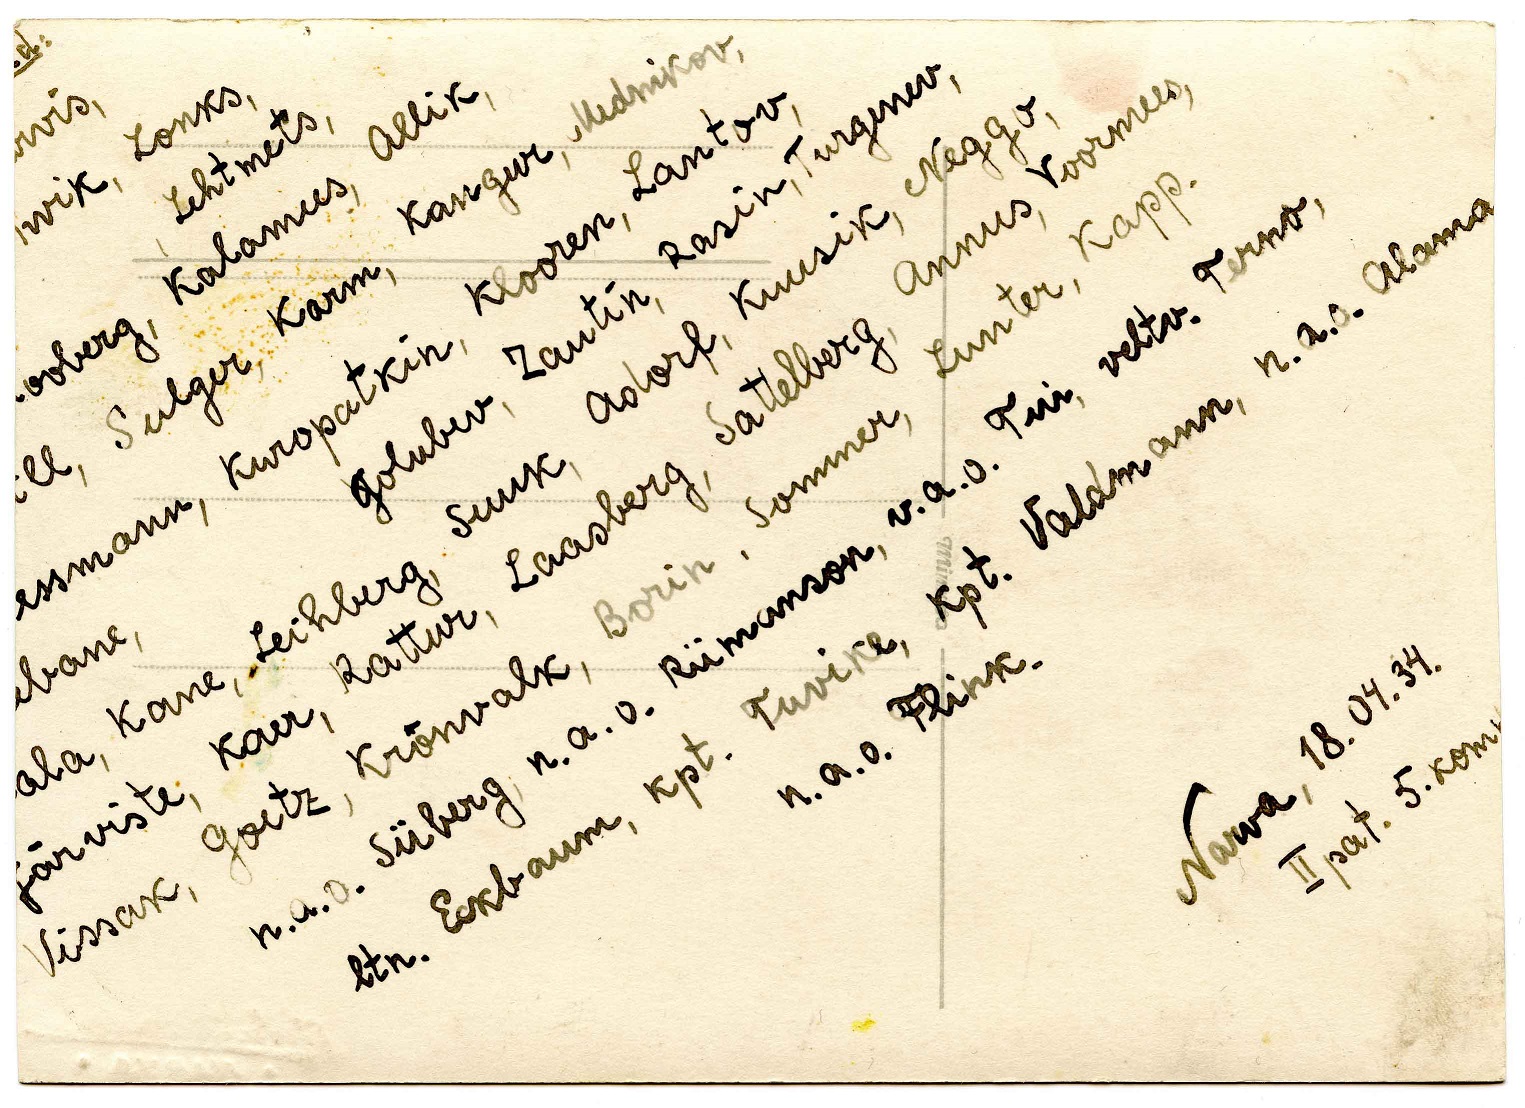 Lonks,
Lehtmets,
Kalamees, Allik,
Sulger, Karm, Kangur, Mednikov,
Kuropatkin, Klooren, Lantov,
Golubev, Zautin, Rasin, Turgenev,
Kane, Leihberg, Suuk, Adorf, Kuusik, Neggo,
Järviste, Kaer, Rattur, Laasberg, Sattelberg, Annus, Voormees,
Vissak, Goetz, Krõnvalk, Borin, Sommer, Lunter, Kapp.
n.a.o. Siiberg, n.a.o. Riimanson, v.a.o. Tui, veltv. Terno,
ltn. Eckbaum, kpt. Tuvike, kpt. Valdmann, n.a.o. Alama
n.a.o. Flink.
Narva, 18.04.34.
II pat. 5.kom.